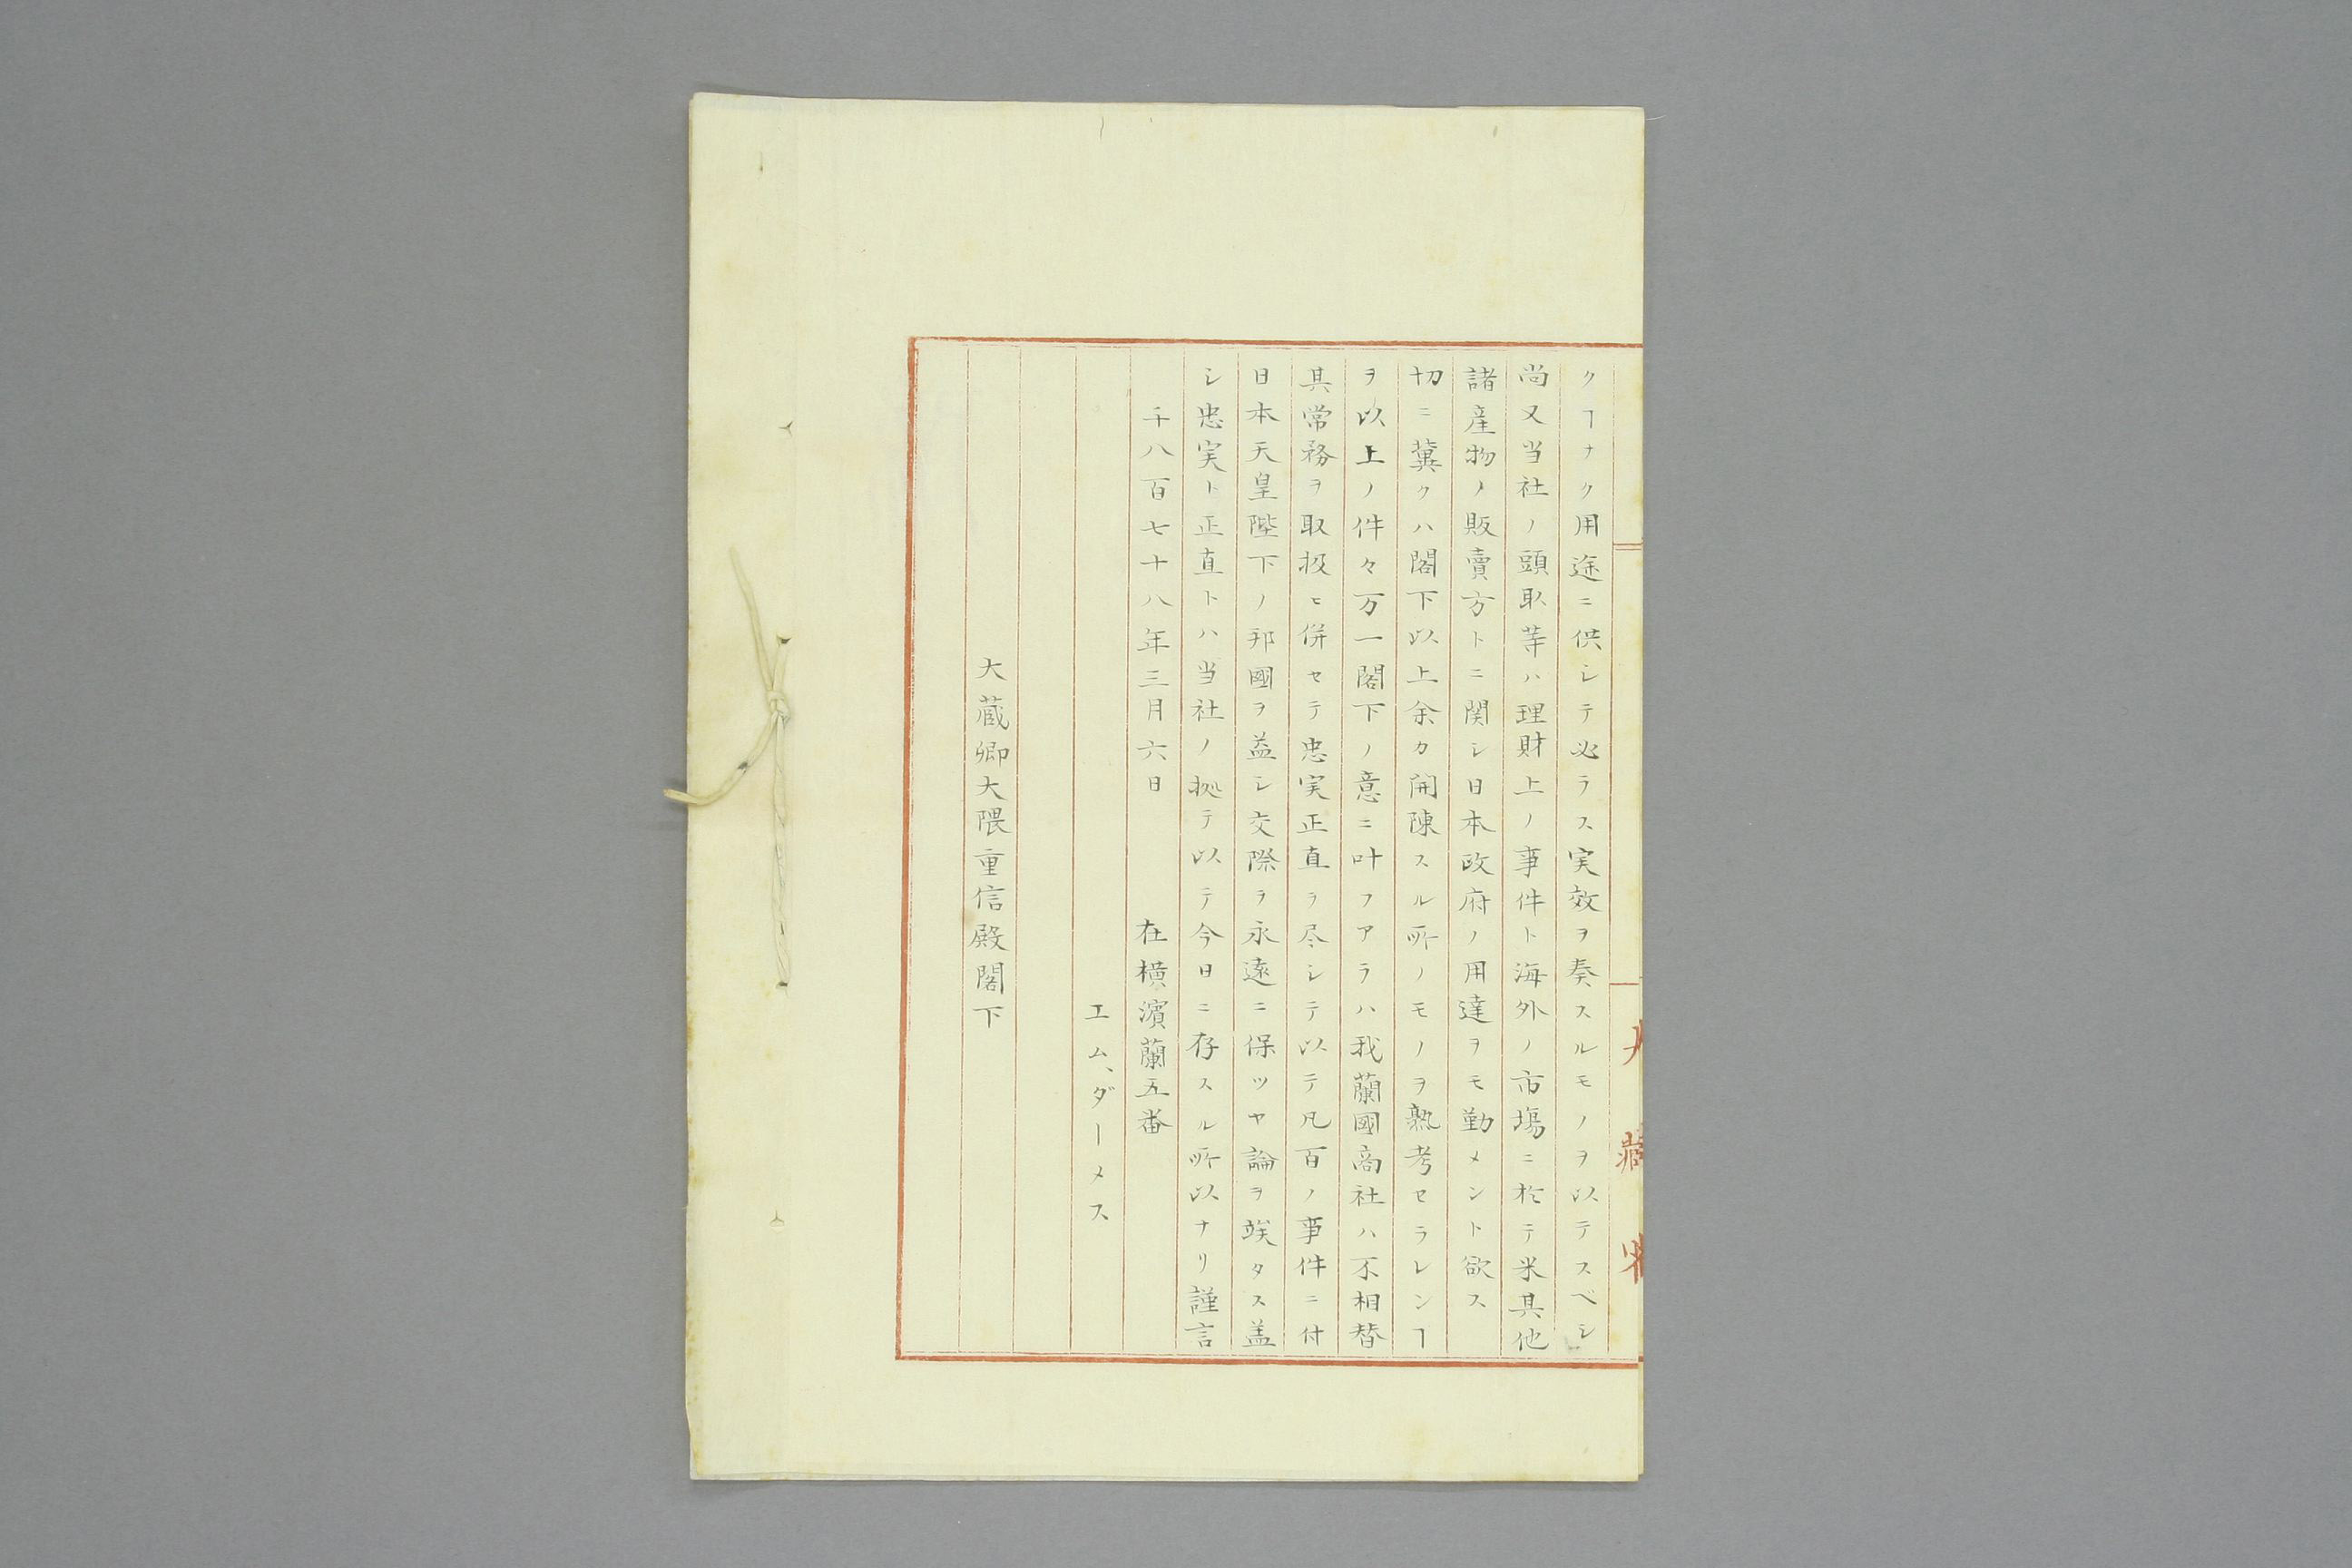 大藏省
クヿナク用途ニ供シテ必ラス実效ヲ奏スルモノヲ以テスベシ
尚又当社ノ頭取等ハ理財上ノ事件ト海外ノ市塲ニ於テ米其他
諸産物ノ販賣方トニ関シ日本政府ノ用達ヲモ勤メント欲ス
切ニ冀クハ閣下以上余カ開陳スル所ノモノヲ熟考セラレンヿ
ヲ以上ノ件々万一閣下ノ意ニ叶フアラハ我蘭國商社ハ不相替
其常務ヲ取扱ヒ併セテ忠実正直ヲ尽シテ以テ凡百ノ事件ニ付
日本天皇陛下ノ邦國ヲ益シ交際ヲ永遠ニ保ツヤ論ヲ竢タス盖
シ忠実ト正直トハ当社ノ拠テ以テ今日ニ存スル所以ナリ謹言
千八百七十八年三月六日　在横濱蘭五番
エム、ダーメス
大蔵卿大隈重信殿閣下